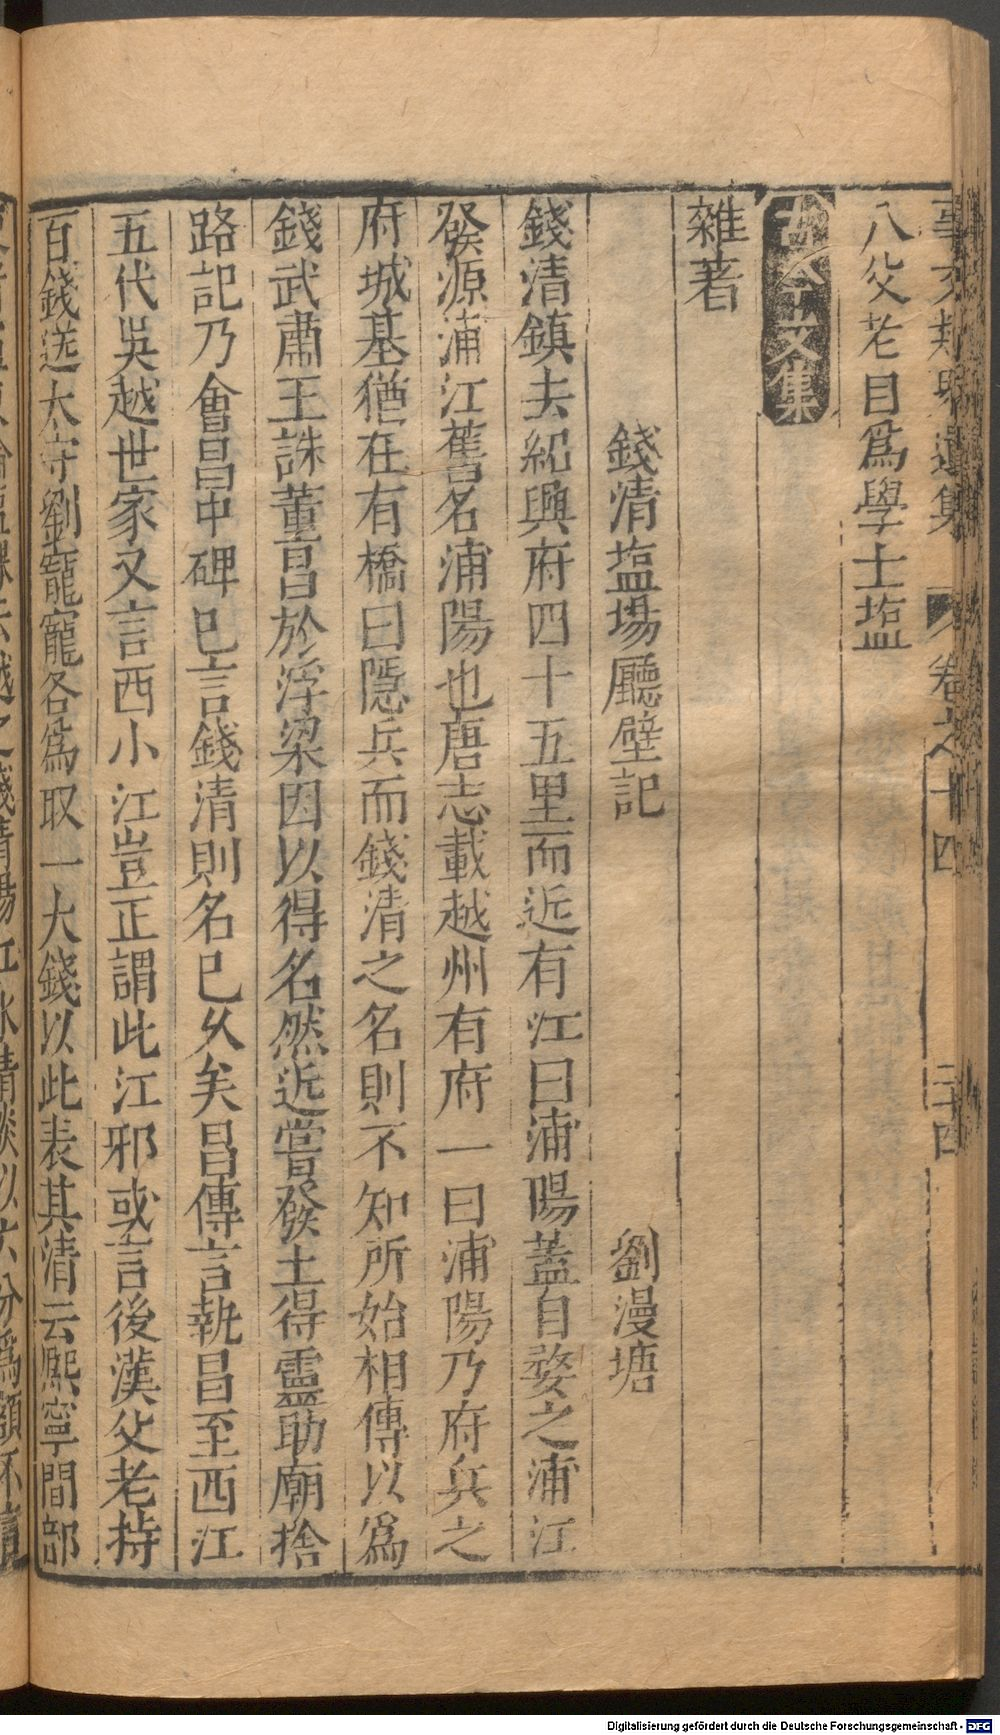 事文類聚遺集 卷之十四 二十四
人父老目為學士塩
古今文集
雜著
錢清塩場廳壁記 劉漫塘
錢清鎮去紹興府四十五里而近有江曰浦陽蓋自婺之浦江
發源浦江舊名浦陽也唐志載越州有府一曰浦陽乃府兵之
府城基猶在有橋曰隱兵而錢清之名則不知所始相傳以為
錢武肅王誅董昌於浮梁因以得名然近嘗發土得靈助廟捨
路記乃會昌中碑已言錢清則名已久矣昌傳言執昌至西江
五代吳越世家又言西小江豈正謂此江邪或言後漢父老持
百錢送太守劉寵寵各為取一大錢以此表其清云熈寧間部